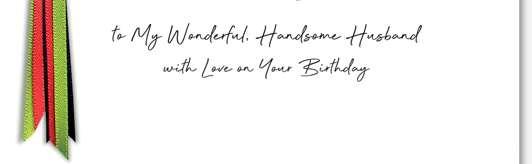 to My Wonderful, Handsome Husband
with Love on Your Birthday